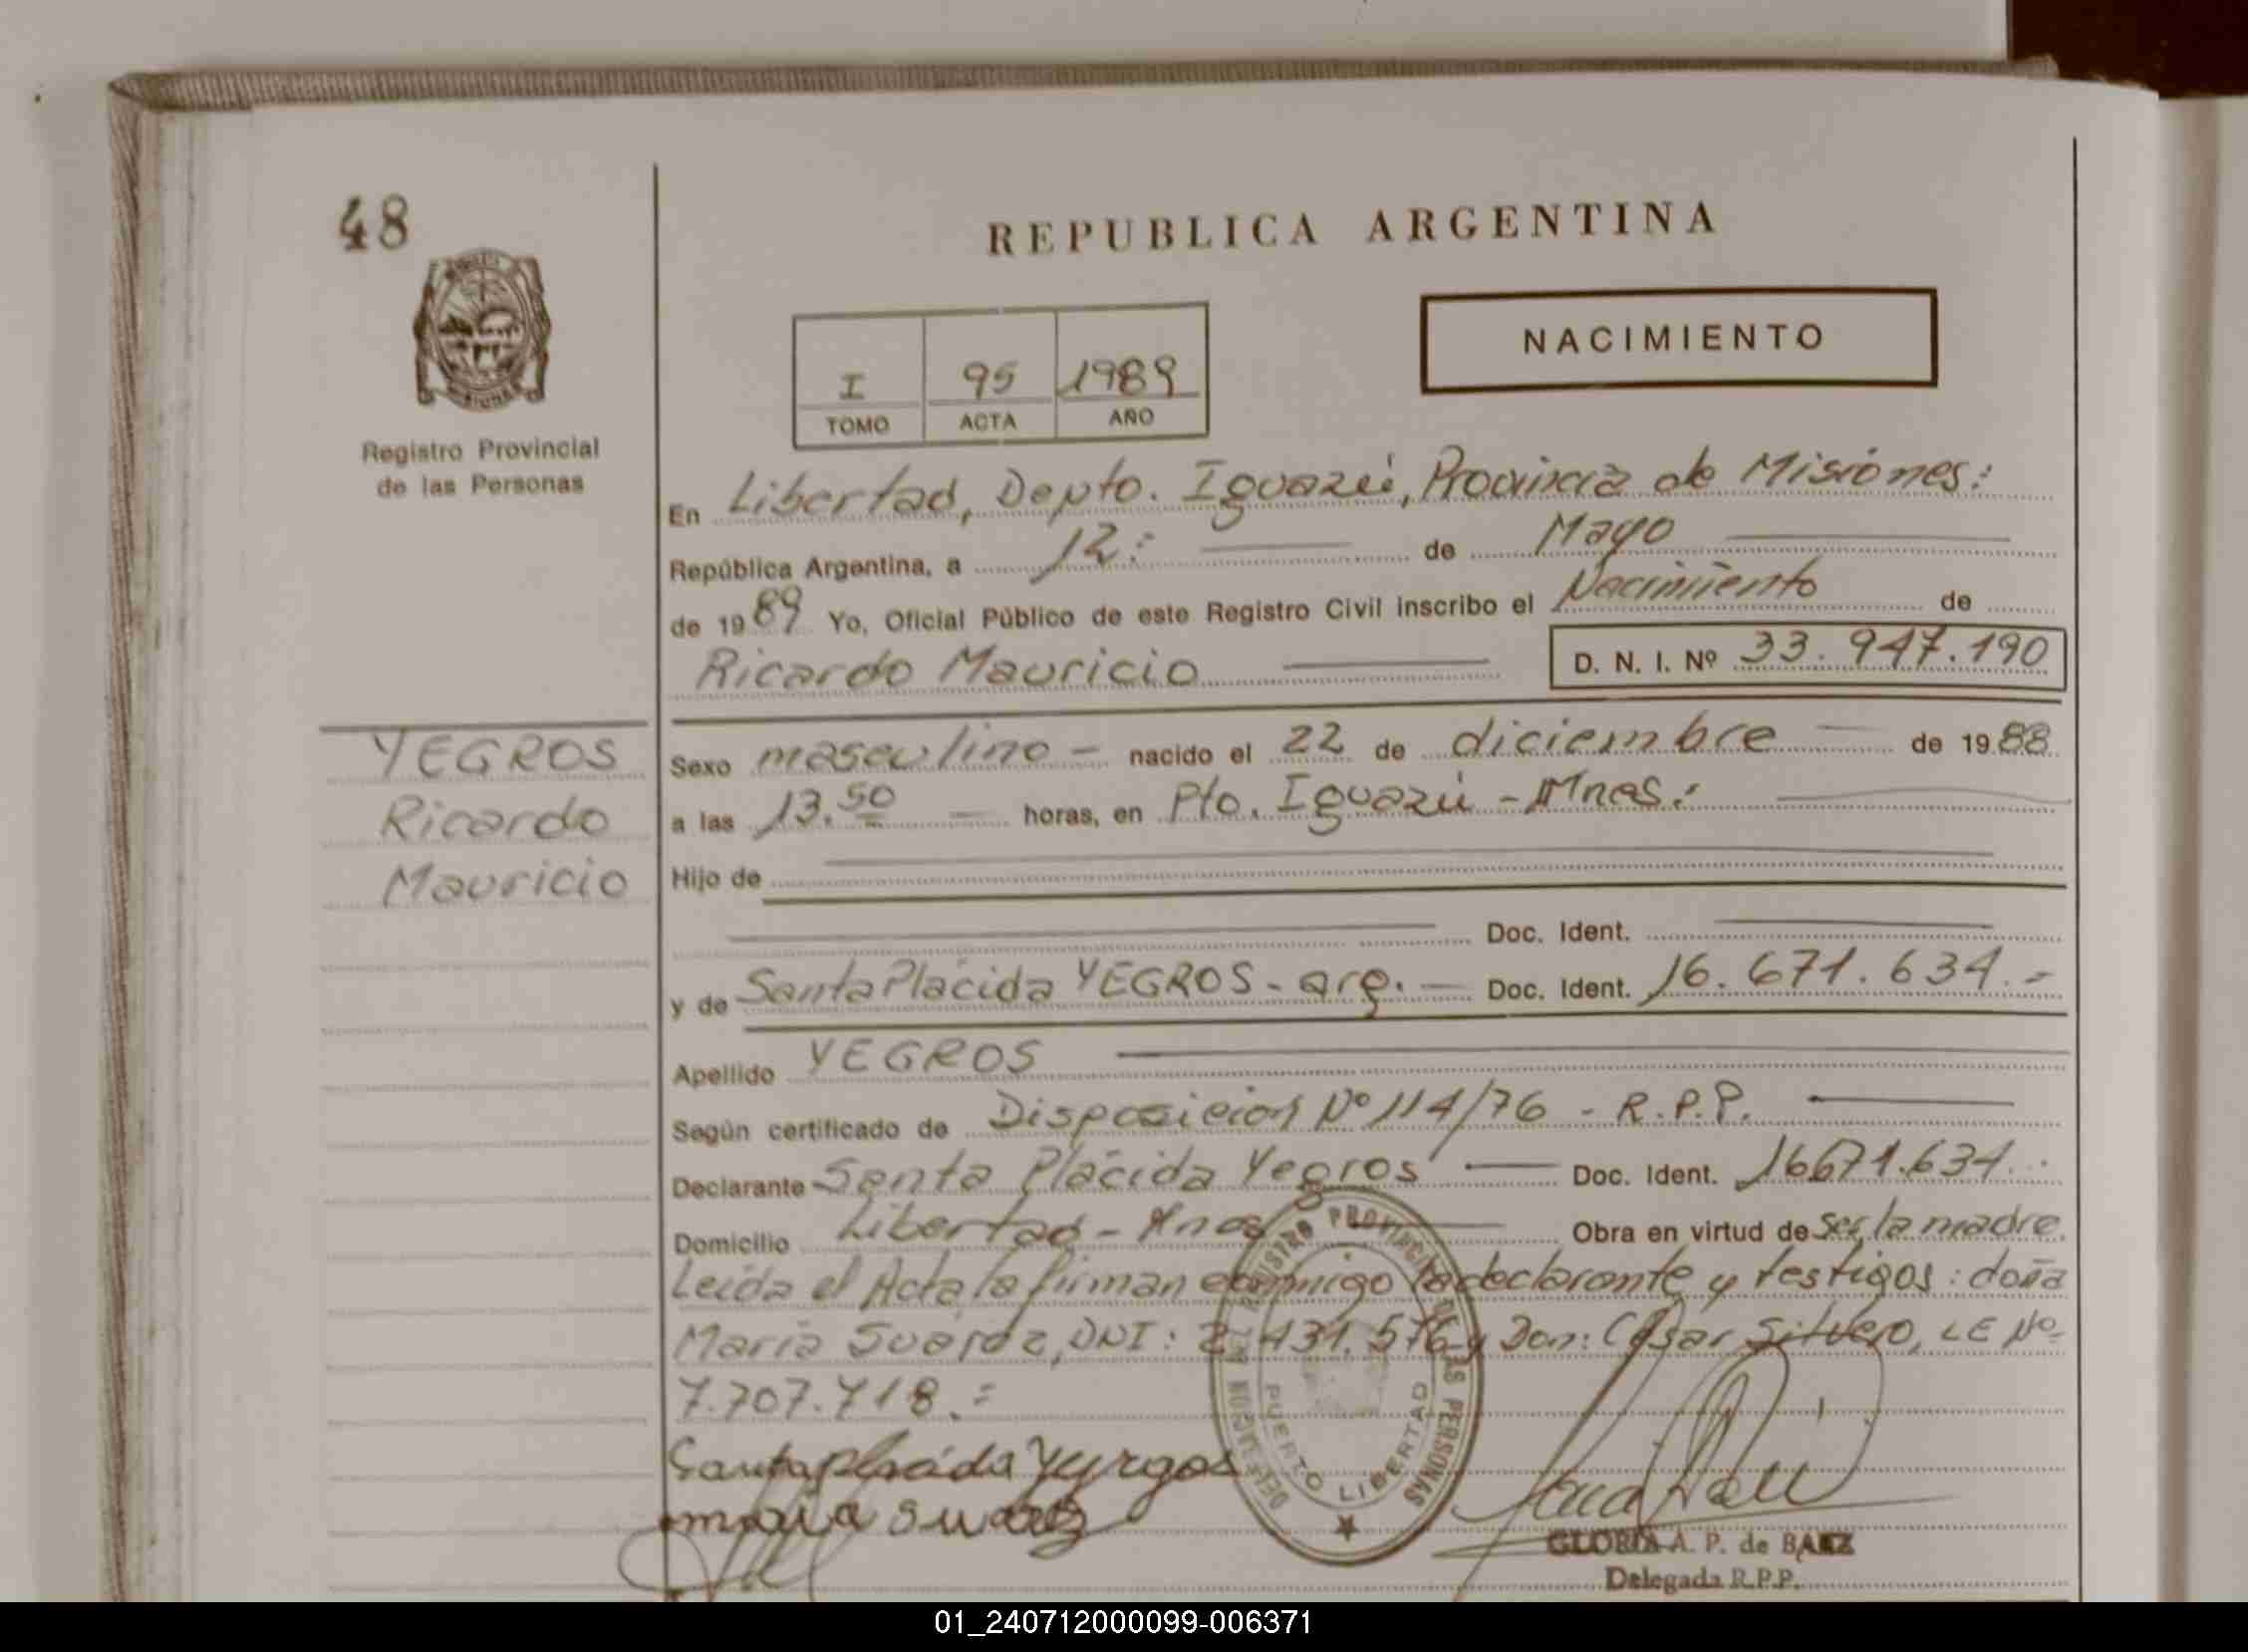 48
REPUBLICA ARGENTINA
NACIMIENTO
I 95 1989
TOMO ACTA AÑO
Registro Provincial
de las Personas
En Libertad, Depto. Iguazú, Provincia de Misiones:
República Argentina, a 12: de Mayo
de 1989 Yo, Oficial Público de este Registro Civil inscribo el Nacimiento de
Ricardo Mauricio D. N. I. Nº 33.947.190
YEGROS
Ricardo
Mauricio
Sexo masculino - nacido el 22 de diciembre de 1988
a las 13.50 horas, en Pto. Iguazú - Mnes.
Hijo de
Doc. Ident.
y de Santa Plácida YEGROS - arg. - Doc. Ident. 16.671.634.-
Apellido YEGROS
Según certificado de Disposición Nº 114/76 - R.P.P.
Declarante Santa Plácida Yegros Doc. Ident. 16671.634.
Domicilio Libertad - Obra en virtud de ser la madre.
Leída el Acta la firman conmigo la declarante y testigos: doña
María Suárez, DNI: 431.576 y Don: César Silvero, LE Nº
7.707.718.=
Santa plasida Yyrgos
maria suarez
REGISTRO PROVINCIAL DE LAS PERSONAS
DELEGACION
PUERTO LIBERTAD
GLORIA A. P. de BAEZ
Delegada R.P.P.
01_240712000099-006371